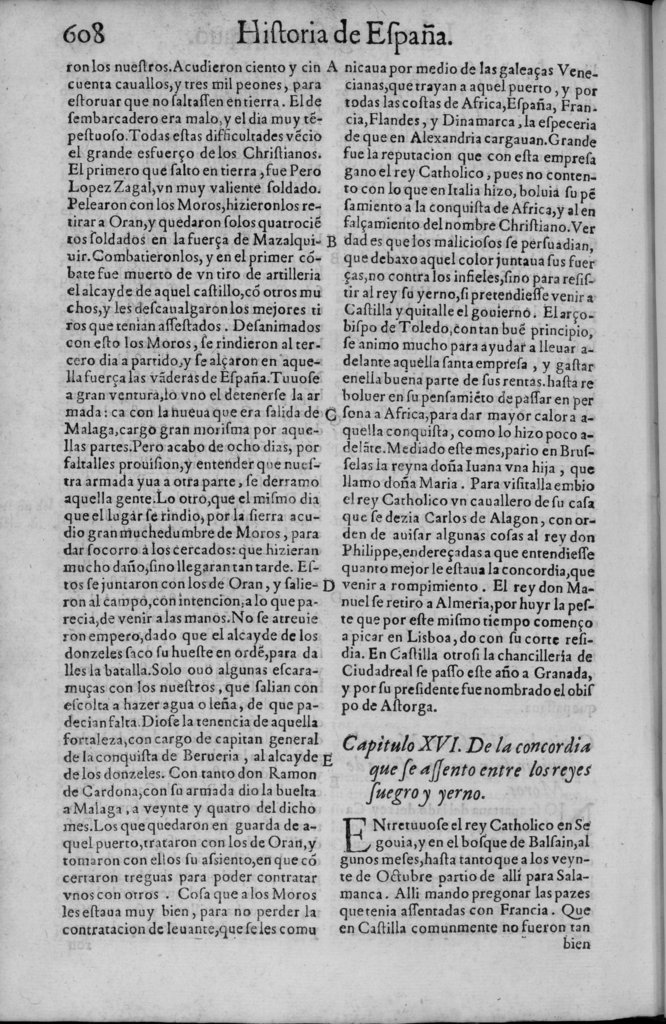 608
Hiſtoria de Eſpaña.
ron los nueſtros. Acudieron ciento y cin
cuenta cauallos, y tres mil peones, para
eſtoruar que no ſaltaſſen en tierra. El de
ſembarcadero era malo, y el dia muy tẽ-
peſtuoſo. Todas eſtas difficultades vẽcio
el grande esfuerço de los Chriſtianos.
El primero que ſalto en tierra, fue Pero
Lopez Zagal, vn muy valiente ſoldado.
Pelearon con los Moros, hizieronlos re-
tirar a Oran, y quedaron ſolos quatrociẽ
tos ſoldados en la fuerça de Mazalqui-
uir. Combatieronlos, y en el primer cõ-
bate fue muerto de vn tiro de artilleria
el alcayde de aquel caſtillo, cõ otros mu
chos, y les deſcaualgaron los mejores ti
ros que tenian aſſeſtados. Deſanimados
con eſto los Moros, ſe rindieron al ter-
cero dia a partido, y ſe alçaron en aque-
lla fuerça las vãderas de Eſpaña. Tuuoſe
a gran ventura, lo vno el detenerſe la ar
mada: ca con la nueua que era ſalida de
Malaga, cargo gran moriſma por aque-
llas partes. Pero acabo de ocho dias, por
faltalles prouiſion, y entender que nueſ-
tra armada yua a otra parte, ſe derramo
aquella gente. Lo otro, que el miſmo dia
que el lugar ſe rindio, por la ſierra acu-
dio gran muchedumbre de Moros, para
dar ſocorro à los cercados: que hizieran
mucho daño, ſino llegaran tan tarde. Eſ-
tos ſe juntaron con los de Oran, y ſalie-
ron al campo, con intencion, a lo que pa-
recia, de venir a las manos. No ſe atreuie
ron empero, dado que el alcayde de los
donzeles ſaco ſu hueſte en ordẽ, para da
lles la batalla. Solo ouo algunas eſcara-
muças con los nueſtros, que ſalian con
eſcolta a hazer agua o leña, de que pa-
decian falta. Dioſe la tenencia de aquella
fortaleza, con cargo de capitan general
de la conquiſta de Berueria, al alcayde
de los donzeles. Con tanto don Ramon
de Cardona, con ſu armada dio la buelta
a Malaga, a veynte y quatro del dicho
mes. Los que quedaron en guarda de a-
quel puerto, trataron con los de Oran, y
tomaron con ellos ſu aſsiento, en que cõ
certaron treguas para poder contratar
vnos con otros. Coſa que a los Moros
les eſtaua muy bien, para no perder la
contratacion de leuante, que ſe les comu
A
B
C
D
E
nicaua por medio de las galeaças Vene-
cianas, que trayan a aquel puerto, y por
todas las coſtas de Africa, Eſpaña, Fran-
cia, Flandes, y Dinamarca, la eſpeceria
de que en Alexandria cargauan. Grande
fue la reputacion que con eſta empreſa
gano el rey Catholico, pues no conten-
to con lo que en Italia hizo, boluia ſu pẽ
ſamiento a la conquiſta de Africa, y al en
ſalçamiento del nombre Chriſtiano. Ver
dad es que los malicioſos ſe perſuadian,
que debaxo aquel color juntaua ſus fuer
ças, no contra los infieles, ſino para reſiſ-
tir al rey ſu yerno, ſi pretendieſſe venir a
Caſtilla y quitalle el gouierno. El arço-
biſpo de Toledo, con tan buẽ principio,
ſe animo mucho para ayudar a lleuar a-
delante aquella ſanta empreſa, y gaſtar
en ella buena parte de ſus rentas. haſta re
boluer en ſu penſamiẽto de paſſar en per
ſona a Africa, para dar mayor calor a a-
quella conquiſta, como lo hizo poco a-
delãte. Mediado eſte mes, pario en Bruſ-
ſelas la reyna doña Iuana vna hija, que
llamo doña Maria. Para viſitalla embio
el rey Catholico vn cauallero de ſu caſa
que ſe dezia Carlos de Alagon, con or-
den de auiſar algunas coſas al rey don
Philippe, endereçadas a que entendieſſe
quanto mejor le eſtaua la concordia, que
venir a rompimiento. El rey don Ma-
nuel ſe retiro a Almeria, por huyr la peſ-
te que por eſte miſmo tiempo començo
a picar en Lisboa, do con ſu corte reſi-
dia. En Caſtilla otroſi la chancilleria de
Ciudadreal ſe paſſo eſte año a Granada,
y por ſu preſidente fue nombrado el obiſ
po de Aſtorga.
Capitulo XVI. De la concordia
que ſe aſſento entre los reyes
ſuegro y yerno.
ENtretuuoſe el rey Catholico en Se
gouia, y en el boſque de Balſain, al
gunos meſes, haſta tanto que a los veyn-
te de Octubre partio de alli para Sala-
manca. Alli mando pregonar las pazes
que tenia aſſentadas con Francia. Que
en Caſtilla comunmente no fueron tan
bien